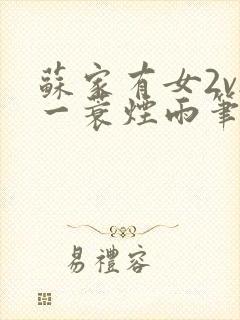 蘇家有女2v
一蓑煙雨筆
易禮容